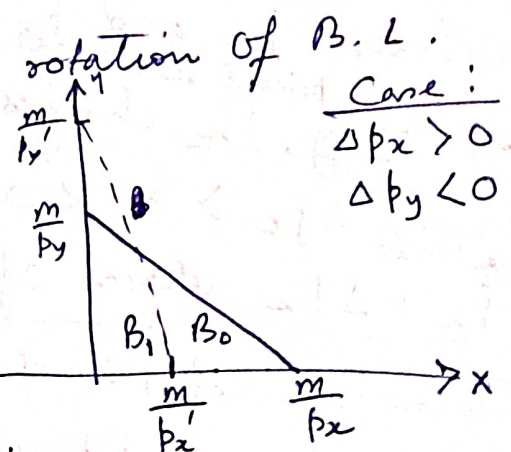 rotation of B.L.
Case :
Δpx > 0
Δpy < 0
y
m/py'
m/py
B₁ B₀
x
m/px' m/px